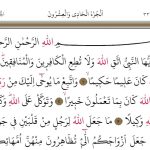 ٣٣ الجزء الحادي والعشرون
اللَّهِ الرَّحْمَٰنِ
النَّبِيُّ اتَّقِ اللَّهَ وَلَا تُطِعِ الْكَافِرِينَ وَالْمُنَافِقِينَ
كَانَ عَلِيمًا حَكِيمًا وَاتَّبِعْ مَا يُوحَىٰ إِلَيْكَ مِنْ
كَانَ بِمَا تَعْمَلُونَ خَبِيرًا وَتَوَكَّلْ عَلَى
وَكِيلًا مَا جَعَلَ اللَّهُ لِرَجُلٍ مِنْ قَلْبَيْنِ فِي
جَعَلَ أَزْوَاجَكُمُ تُظَاهِرُونَ مِنْهُنَّ أُمَّهَاتِكُمْ